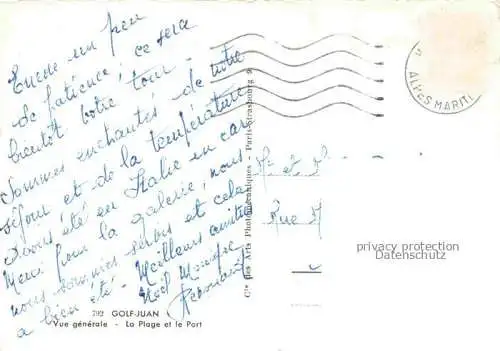 Encore un peu
de patience, ce sera
bientôt votre tour -
Sommes enchantés de notre
séjour et de la température
Avons été en Italie en car
Merci pour la galerie, nous
nous sommes servis et cela
a bien été - Meilleurs amitiés
Noël
792 GOLF-JUAN
Vue générale - La Plage et le Port
Cie des Arts Photomécaniques - Paris-Strasbourg
ALPES MARITI
M et M
Rue
privacy protection
Datenschutz